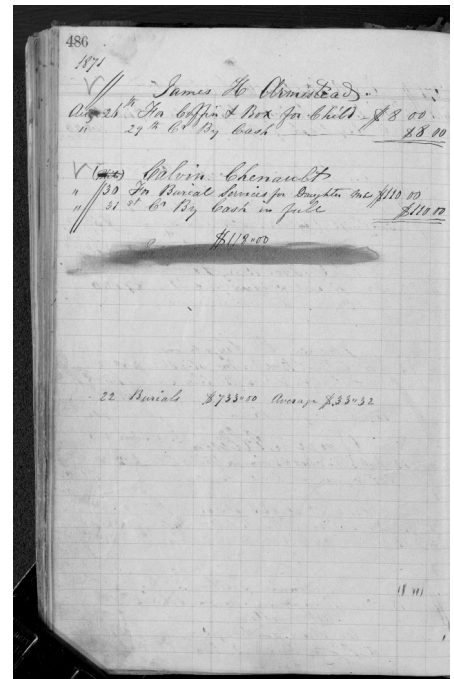 486
1871
James H Armistead.
Aug 26th For Coffin & Box for Child $8 00
" 29th Cr By Cash $8 00
Calvin Chenault
" 30 For Burial Services for Daughter $110 00
" 31st Cr By Cash in full $110 00
$118.00
22 Burials $733.00 Average $33.32